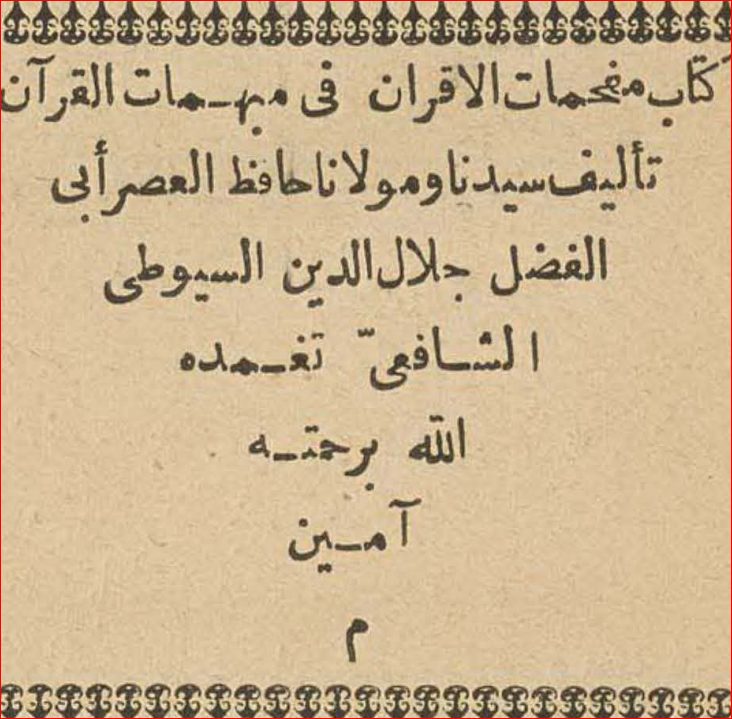 كتاب مفحمات الاقران فى مبهمات القرآن
تأليف سيدنا ومولانا حافظ العصر أبى
الفضل جلال الدين السيوطى
الشافعىّ تغمده
الله برحمته
آمين
م